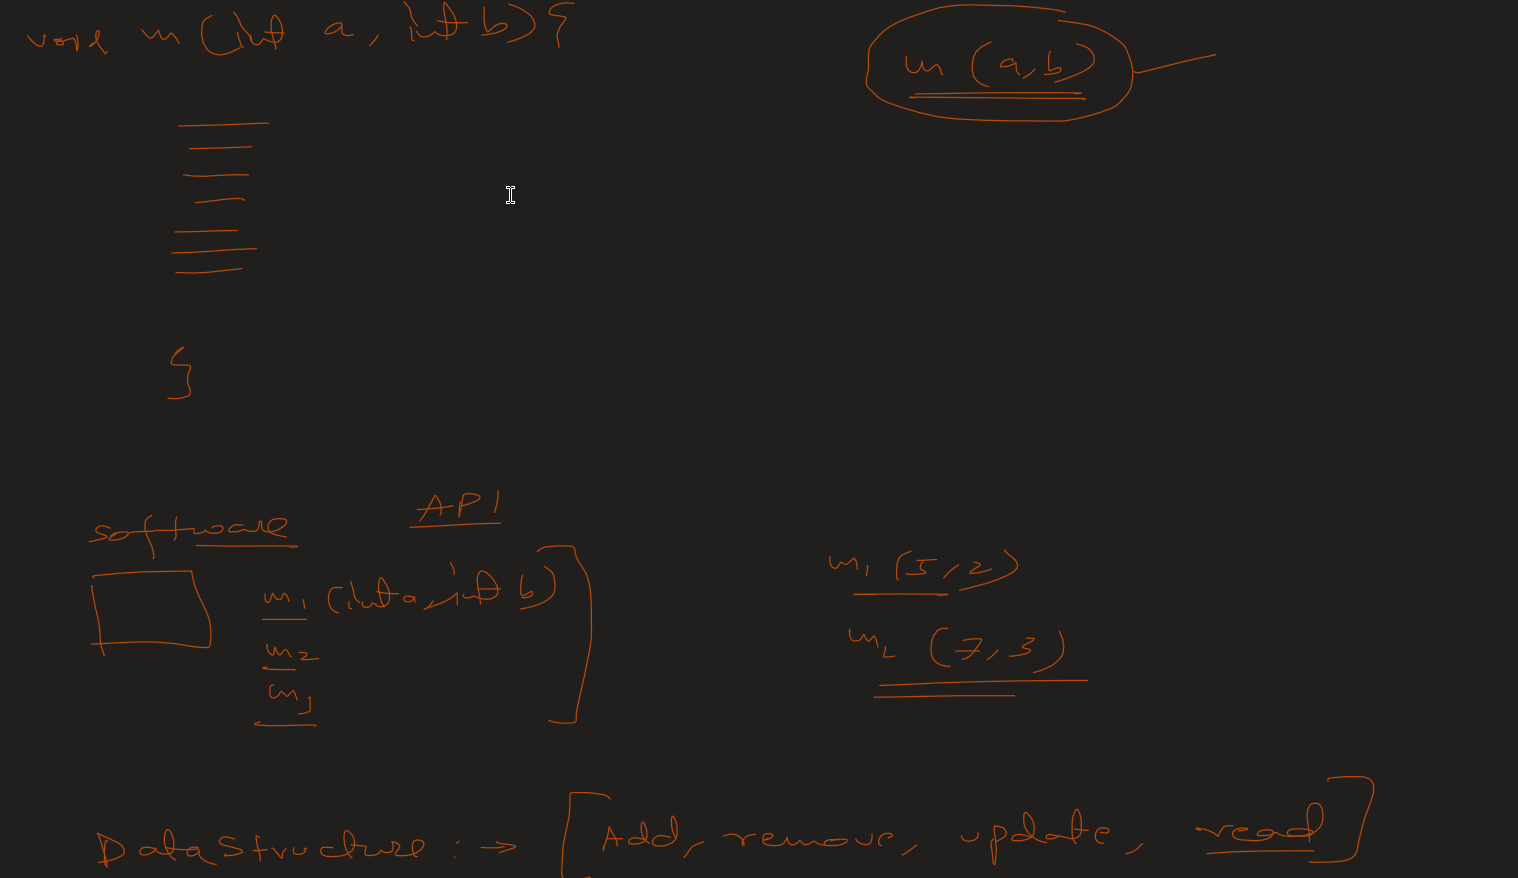 void m (int a, int b) {
m (a,b)
}
API
software
m1 (int a, int b)
m1 (5,2)
m2
m2 (7,3)
m3
Data Structure : → [Add, remove, update, read]